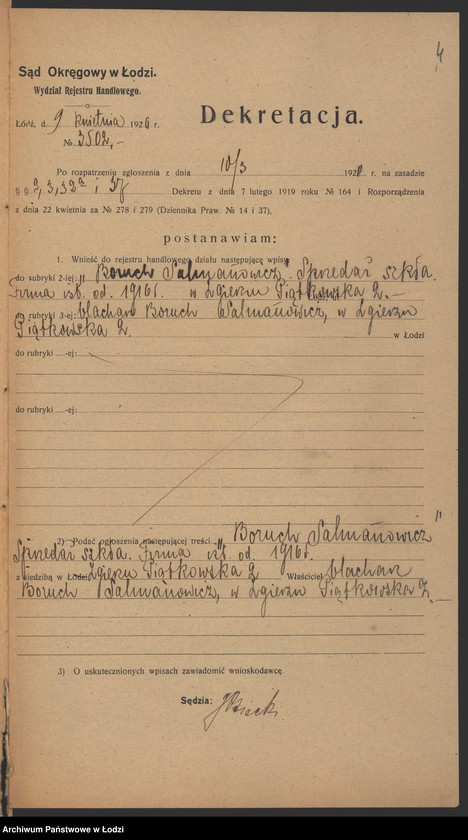 4
Sąd Okręgowy w Łodzi.
Wydział Rejestru Handlowego.
Dekretacja.
Łódź, d. 9 kwietnia 1920 r.
№ 3502.-
Po rozpatrzeniu zgłoszenia z dnia 10/3 1920 r. na zasadzie
§ § 2, 3, 32a i 37 Dekretu z dnia 7 lutego 1919 roku № 164 i Rozporządzenia
z dnia 22 kwietnia za № 278 i 279 (Dziennika Praw. № 14 i 37),
postanawiam:
1. Wnieść do rejestru handlowego działu następujące wpisy
do rubryki 2-iej: "Boruch Salmanowicz". Sprzedaż szkła.
Firma istn. od. 1916 r. w Zgierzu Piątkowska 2.-
do rubryki 3-ej: Wachan Boruch Salmanowicz, w Zgierzu
Piątkowska 2. w Łodzi
do rubryki -ej:
do rubryki -ej:
2) Podać ogłoszenia następującej treści: "Boruch Salmanowicz"
Sprzedaż szkła. Firma istn. od. 1916 r.
z siedzibą w Łodzi, Zgierzu Piątkowska 2 Właściciel Wachan
Boruch Salmanowicz, w Zgierzu Piątkowska 2.-
3) O uskutecznionych wpisach zawiadomić wnioskodawcę.
Sędzia:
Archiwum Państwowe w Łodzi